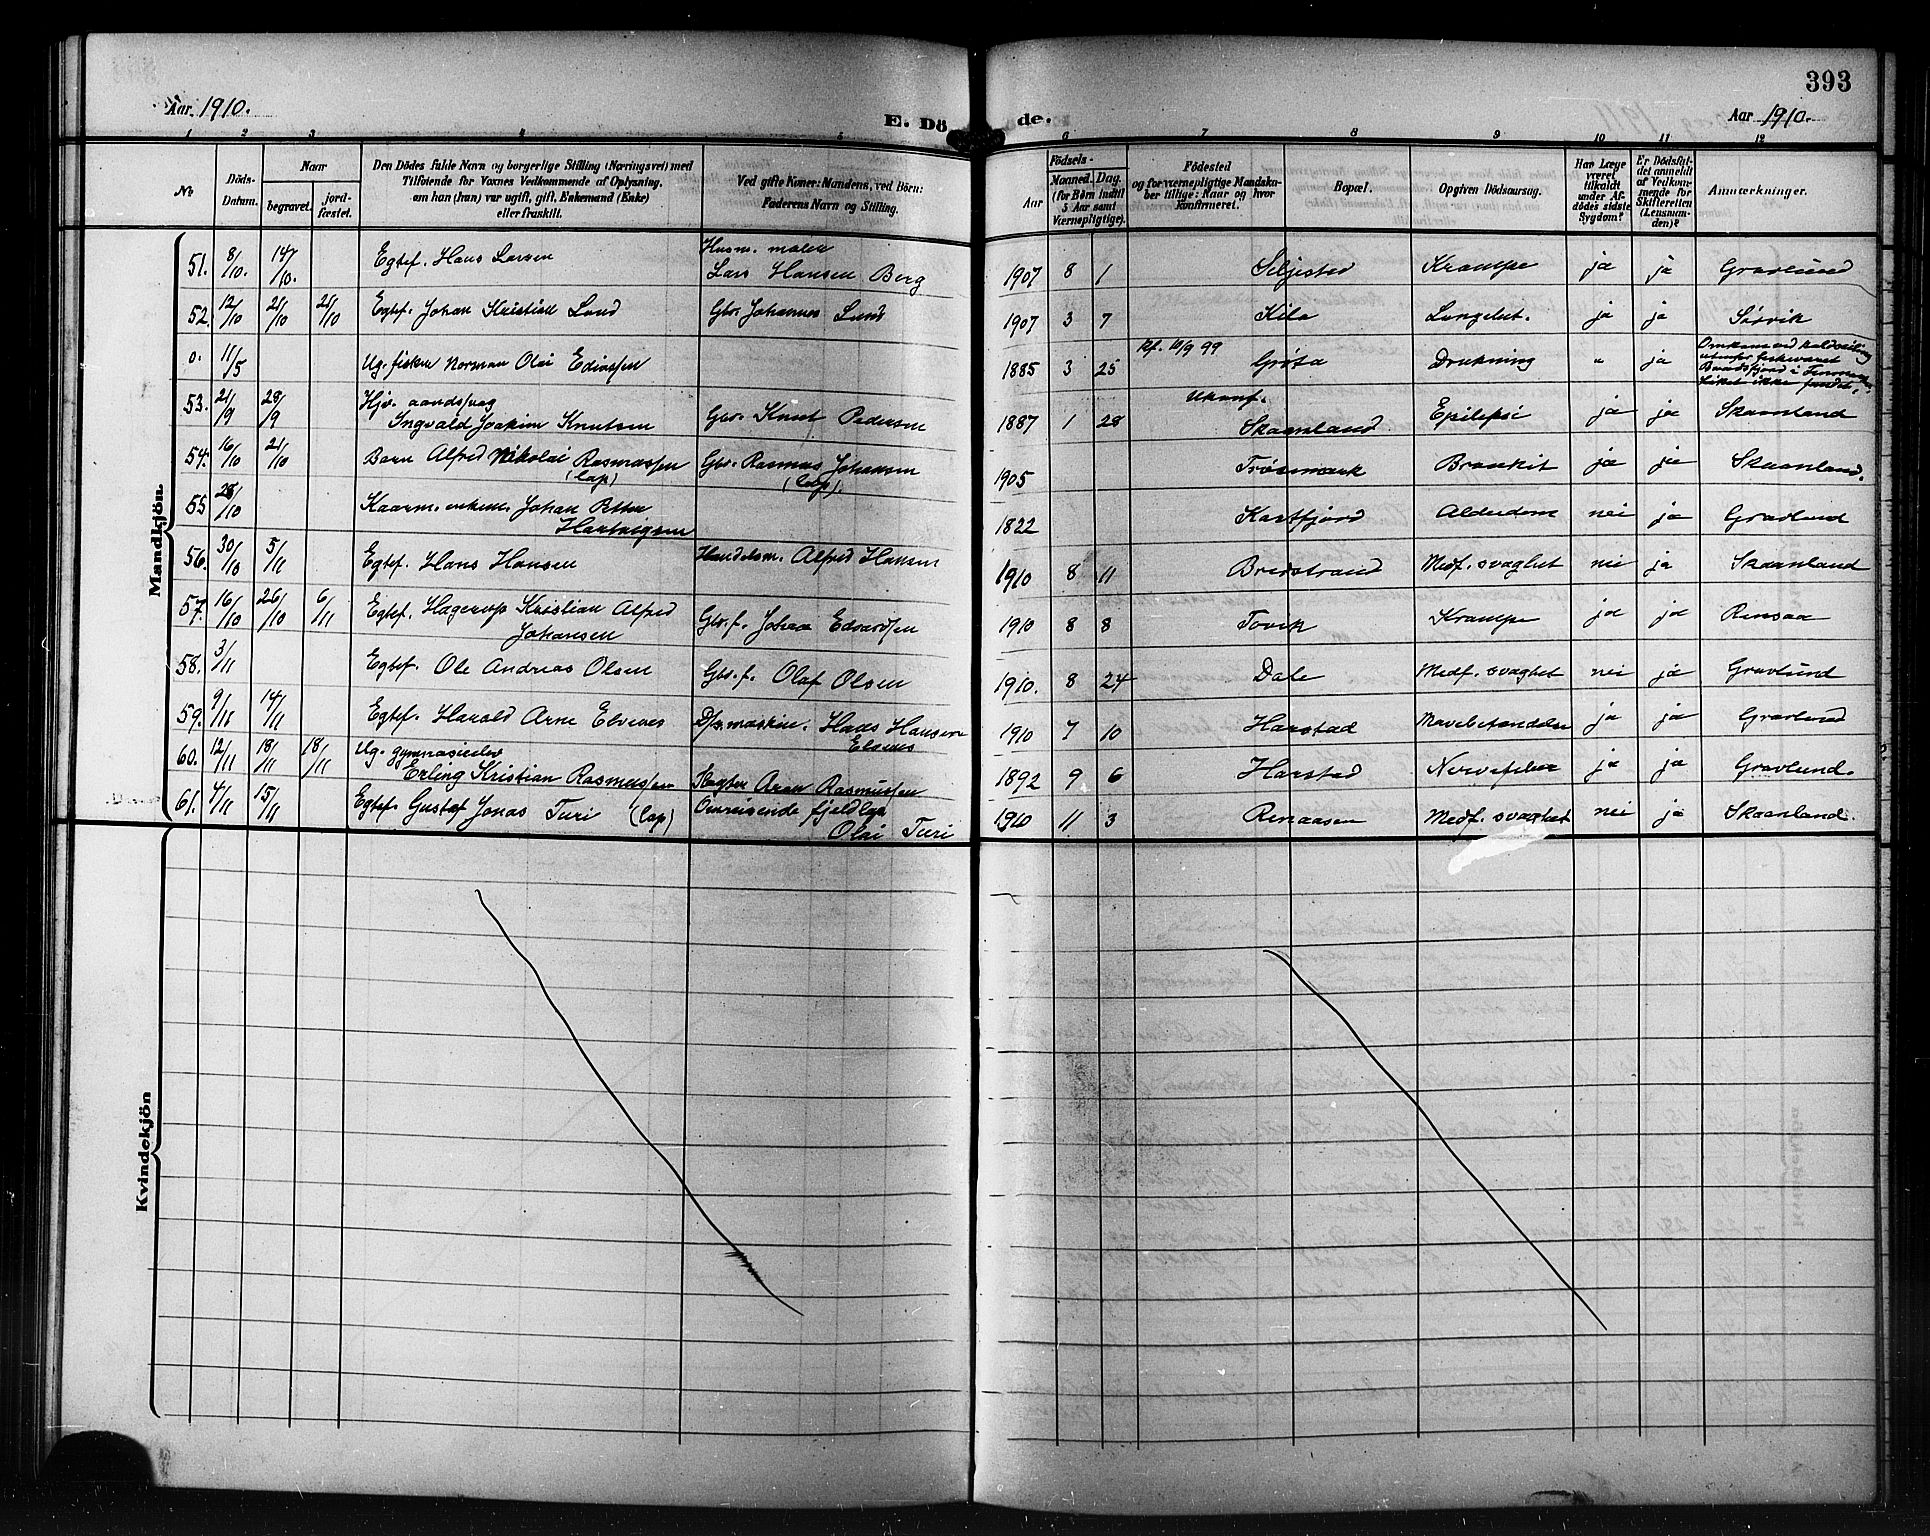 393
Aar 1910.
E. Dö
de.
Aar 1910.
1 2 3 4 5 6 7 8 9 10 11 12
No
Döds-
Datum.
Naar
begravet.
jord-
fæstet.
Den Dödes fulde Navn og borgerlige Stilling (Næringsvei) med
Tilföiende for Voxnes Vedkommende af Oplysning,
om han (hun) var ugift, gift, Enkemand (Enke)
eller fraskilt.
Ved gifte Koner: Mandens, ved Börn:
Faderens Navn og Stilling.
Födsels-
Aar
Maaned. Dag.
(for Börn indtil
5 Aar samt
Værnepligtige).
Födested
og for værnepligtige Mandska-
ber tillige: Naar og hvor
konfirmeret.
Bopæl.
Opgiven Dödsaarsag.
Har Læge
været
tilkaldt
under Af-
dödes sidste
Sygdom?
Er Dödsfal-
det anmeldt
af Vedkom-
mende for
Skifteretten
(Lensman-
den)?
Anmærkninger.
Mandkjön.
51. 8/10. 14/10. Egtef. Hans Larsen Husm. maler Lars Hansen Berg 1907 8 1 Siljestad Krampe ja ja Gravlund
52. 12/10 21/10 21/10 Egtef. Johan Kristian Lund Gbr. Johannes Lund 1907 3 7 Kila Lungebet. ja ja Sörvik
0. 11/5 Ug. fisker Norman Olai Ediassen 1885 3 25 kf. 10/9 99 Gröta Drukning " ja Omkom ved kuldseiling utenfor fiskeværet Baadsfjord i Liket ikke fundet.
53. 21/9 28/9 Hjv. aandssvag Ingvald Joakim Knutsen Gbr. Knut Pedersen 1887 1 28 Ukonf. Skaanland Epilepsi ja ja Skaanland
54. 16/10 21/10 Barn Alfred Nikolai Rasmussen (lap) Gbr. Rasmus Johansen (lap). 1905 Trössmark Bronkit ja ja Skaanland.
55 28/10 Kaarm. enkem. Johan Petter Hartvigsen 1822 Kastfjord Alderdom nei ja Gravlund
56. 30/10 5/11 Egtef. Hans Hansen Handelsm. Alfred Hansen 1910 8 11 Bredstrand Medf. svaghet nei ja Skaanland
57. 16/10 26/10 6/11 Egtef. Hagerup Kristian Alfred Johansen Gbr. f. Johan Edvardsen 1910 8 8 Tovik Krampe ja ja Rensaa
58. 3/11 Egtef. Ole Andreas Olsen Gbr. f. Olaf Olsen 1910. 8 24 Dale Medf. svaghet nei ja Gravlund
59. 9/11 14/11 Egtef. Harald Arne Elvenes D/s maskin. Hans Hansen Elvenes 1910 7 10 Harstad Mavebetændelse ja ja Gravlund
60. 12/11 18/11 18/11 Ug. gymnasieelev Erling Kristian Rasmussen Aron Rasmussen 1892 9 6 Harstad Nervefeber ja ja Gravlund.
61. 4/11 15/11 Egtef. Gustaf Jonas Turi (lap) Omreisende fjeldlap Olai Turi 1910 11 3 Renaasen Medf. svaghet nei ja Skaanland.
Kvindekjön